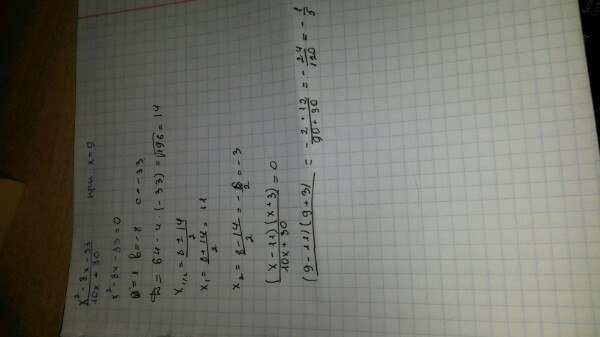 x² - 8x - 33 / 10x + 30 при x = 9
x² - 8x - 33 = 0
a = 1 b = -8 c = -33
D = 64 - 4 · (-33) = √196 = 14
x₁,₂ = 8 ± 14 / 2
x₁ = 8 + 14 / 2 = 11
x₂ = 8 - 14 / 2 = - 6 / 2 = -3
(x - 11)(x + 3) / 10x + 30 = 0
(9 - 11)(9 + 3) / = - 2 · 12 / 90 + 30 = - 24 / 120 = - 1 / 5